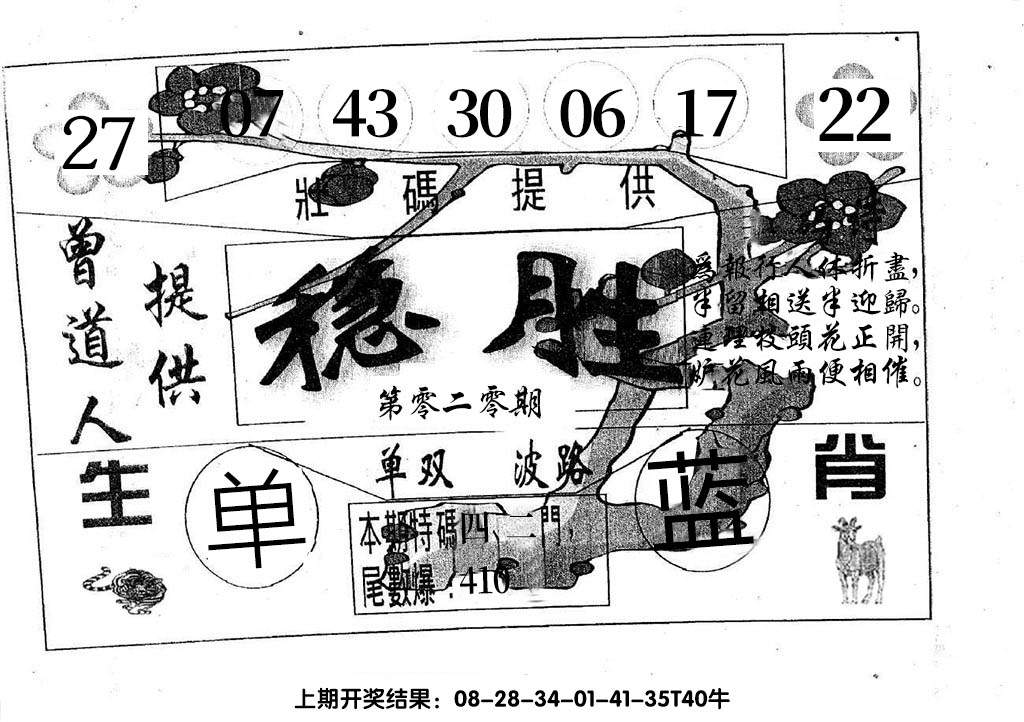 27 07 43 30 06 17 22
壯碼提供
曾道人
提供
稳胜
第零二零期
特
爲報行人休折盡，
半留相送半迎歸。
連理枝頭花正開，
妒花風雨便相催。
生 肖
单双 波路
单 蓝
本期特碼四、二門，
尾數爆：410
上期开奖结果：08-28-34-01-41-35T40牛